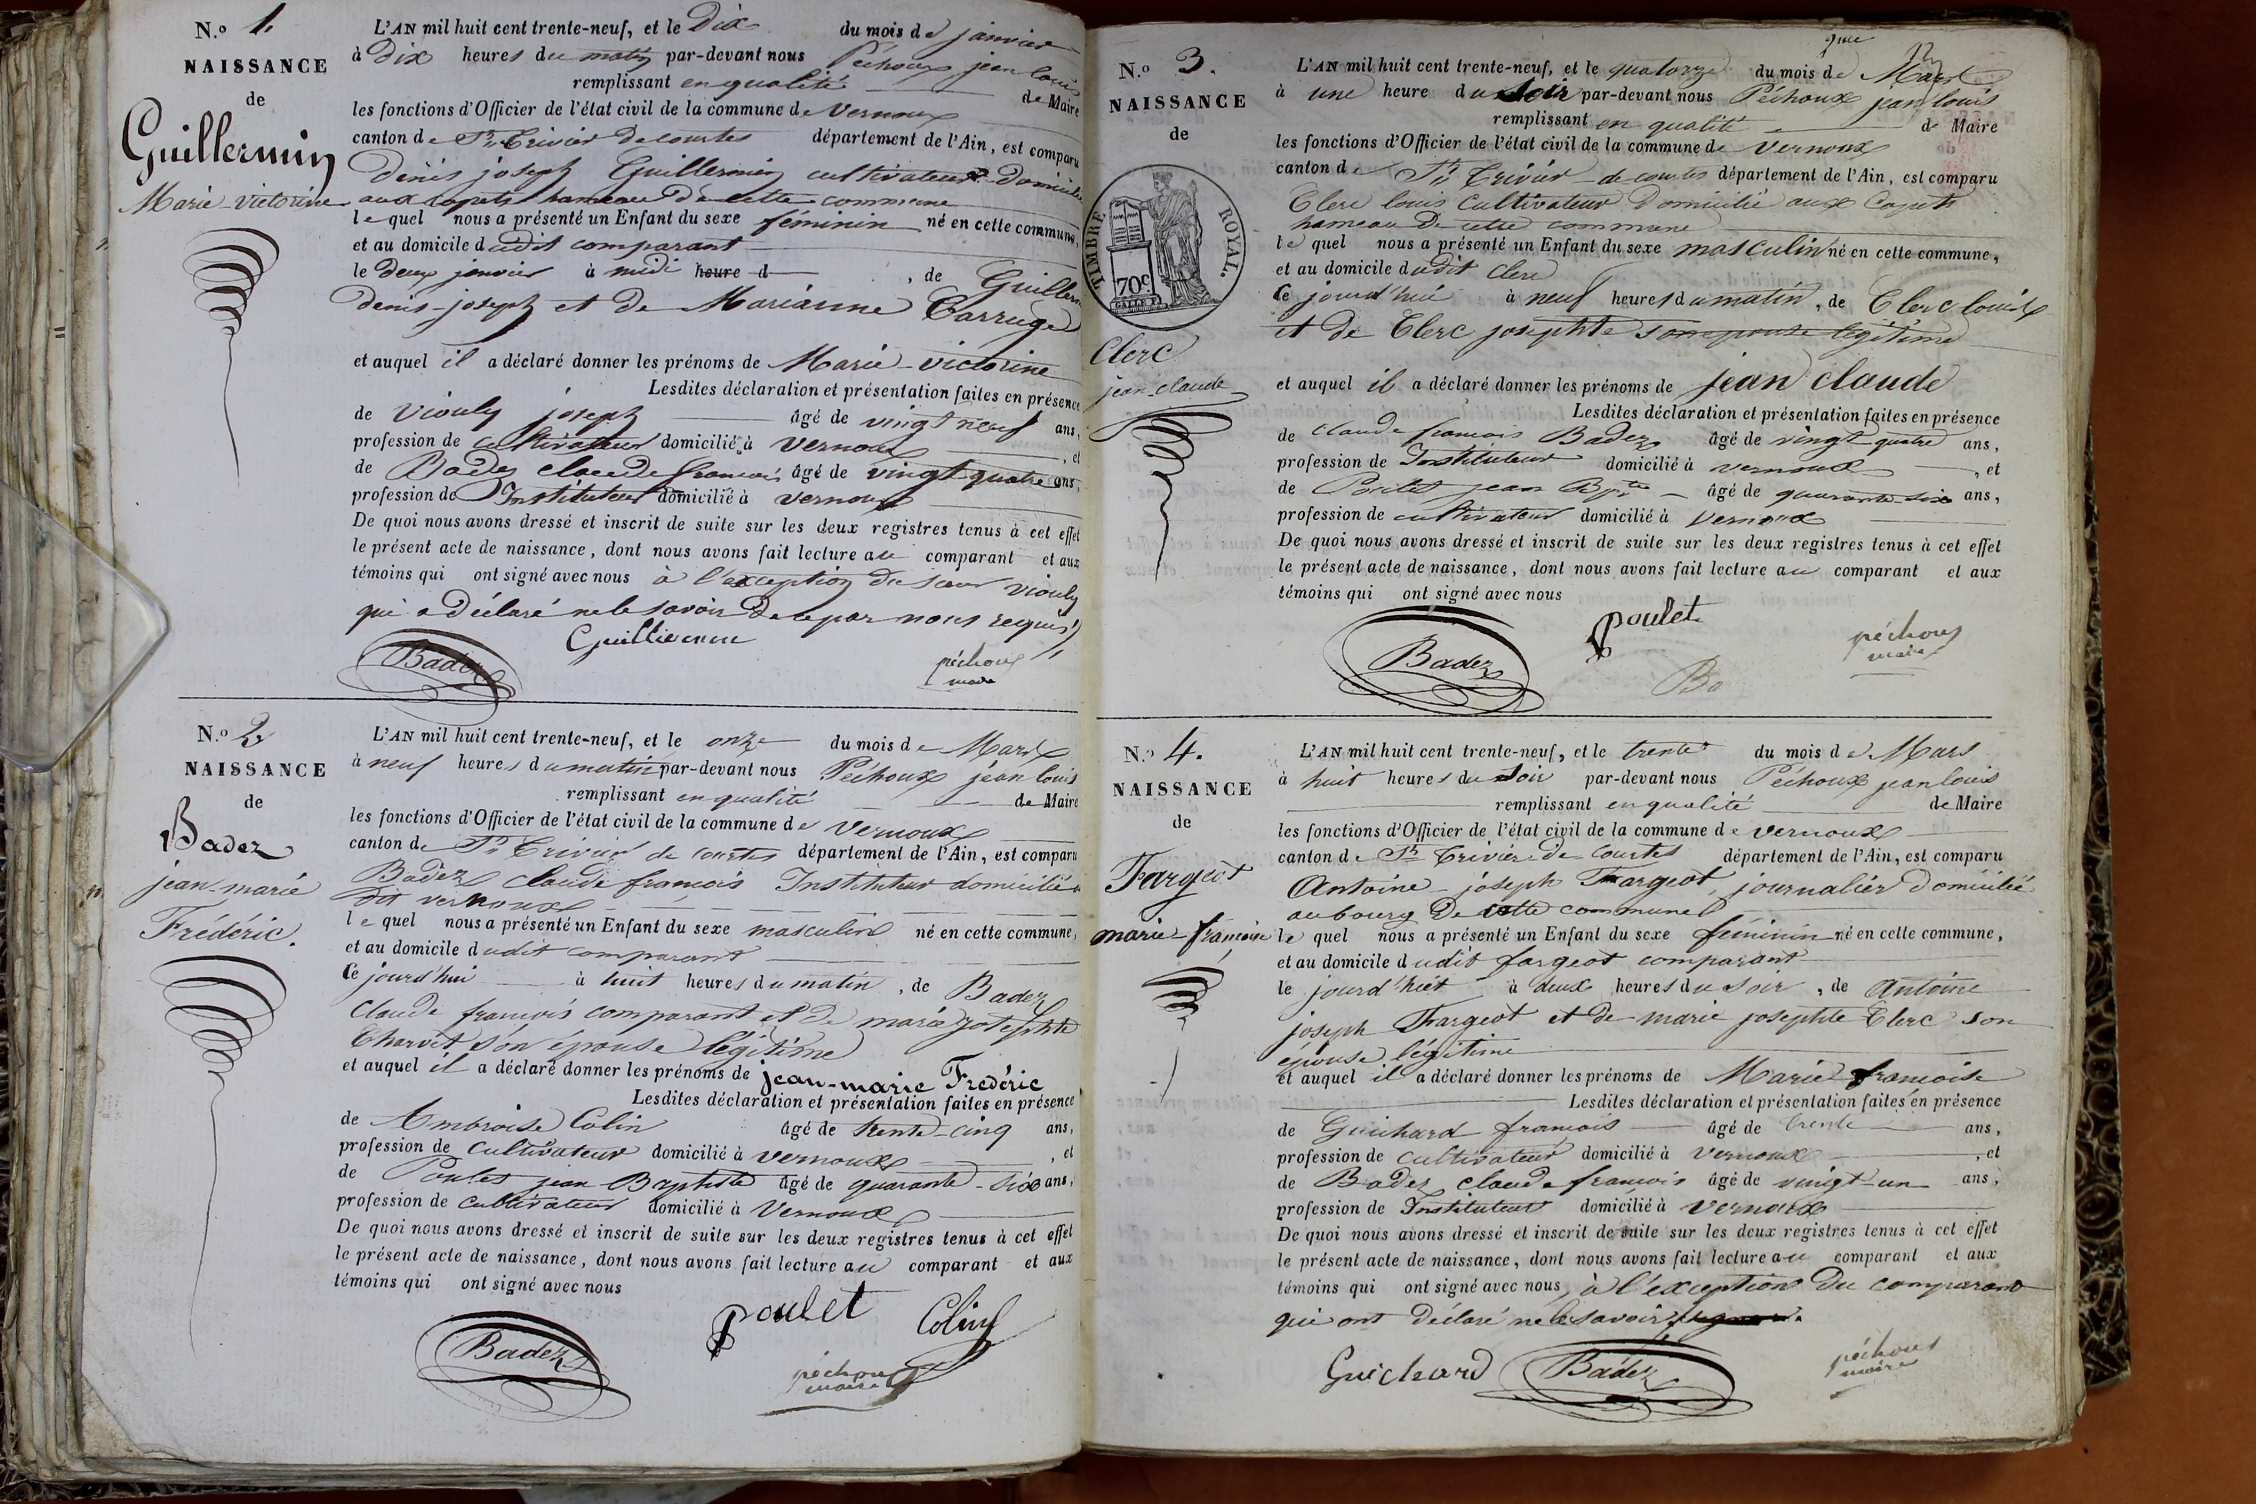 N.o 1.
NAISSANCE
de
Guillermin
Marie-victorine
L'AN mil huit cent trente-neuf, et le Dix du mois de janvier
à Dix heures du matin par-devant nous Péchoux jean louis
remplissant en qualité de Maire
les fonctions d'Officier de l'état civil de la commune de Vernoux
canton de St Trivier De courtes département de l'Ain, est comparu
Denis joseph Guillermin cultivateur Domicilié
aux Coquets hameau De cette commune
le quel nous a présenté un Enfant du sexe féminin né en cette commune,
et au domicile dudit comparant
le deux janvier à midi heure d , de Guillerm
denis-joseph et de Marianne Carruge
et auquel il a déclaré donner les prénoms de Marie-victorine
Lesdites déclaration et présentation faites en présence
de Viouly joseph âgé de vingt neuf ans,
profession de cultivateur domicilié à Vernoux , et
de Badez claude françois âgé de vingt-quatre ans,
profession de Instituteur domicilié à Vernoux
De quoi nous avons dressé et inscrit de suite sur les deux registres tenus à cet effet
le présent acte de naissance, dont nous avons fait lecture au comparant et aux
témoins qui ont signé avec nous à l'exception du sieur Viouly
qui a déclaré ne le savoir De ce par nous requis
Guillermin
Badez
péchoux
maire
N.o 2.
NAISSANCE
de
Badez
jean-marie
Frédéric.
L'AN mil huit cent trente-neuf, et le onze du mois de Mars
à neuf heures du matin par-devant nous Péchoux jean louis
remplissant en qualité de Maire
les fonctions d'Officier de l'état civil de la commune de Vernoux
canton de St Trivier de courtes département de l'Ain, est comparu
Badez claude françois Instituteur domicilié a
dit vernoux
le quel nous a présenté un Enfant du sexe masculin né en cette commune,
et au domicile dudit comparant
Ce jourd'hui à huit heures du matin , de Badez
claude françois comparant et de marie josephte
Charvet son épouse légitime
et auquel il a déclaré donner les prénoms de jean-marie Frédéric
Lesdites déclaration et présentation faites en présence
de Ambroise Colin âgé de trente-cinq ans,
profession de cultivateur domicilié à Vernoux , et
de Poulet jean Baptiste âgé de quarante-six ans,
profession de cultivateur domicilié à Vernoux
De quoi nous avons dressé et inscrit de suite sur les deux registres tenus à cet effet
le présent acte de naissance, dont nous avons fait lecture au comparant et aux
témoins qui ont signé avec nous
poulet Colin
Badez
péchoux
maire
N.o 3.
NAISSANCE
de
TIMBRE ROYAL.
70c
Clerc
jean-claude
L'AN mil huit cent trente-neuf, et le quatorze du mois de Mars
à une heure du soir par-devant nous Péchoux jean louis
remplissant en qualité de Maire
les fonctions d'Officier de l'état civil de la commune de Vernoux
canton de St Trivier de courtes département de l'Ain, est comparu
Clerc louis Cultivateur Domicilié aux Coquets
hameau De cette commune
le quel nous a présenté un Enfant du sexe masculin né en cette commune,
et au domicile dudit Clerc
Ce jourd'hui à neuf heures du matin , de Clerc louis
et de Clerc josephte son epouse légitime
et auquel il a déclaré donner les prénoms de jean claude
Lesdites déclaration et présentation faites en présence
de claude françois Badez âgé de vingt quatre ans,
profession de Instituteur domicilié à vernoux , et
de Poulet jean Bpte âgé de quarante-six ans,
profession de cultivateur domicilié à Vernoux
De quoi nous avons dressé et inscrit de suite sur les deux registres tenus à cet effet
le présent acte de naissance, dont nous avons fait lecture au comparant et aux
témoins qui ont signé avec nous
poulet
Badez
péchoux
maire
Ba
N.o 4.
NAISSANCE
de
Fargeot
marie-françoise
L'AN mil huit cent trente-neuf, et le trente du mois de Mars
à huit heures du soir par-devant nous Péchoux jean louis
remplissant en qualité de Maire
les fonctions d'Officier de l'état civil de la commune de Vernoux
canton de St Trivier de Courtes département de l'Ain, est comparu
Antoine-joseph Fargeot, journalier Domicilié
au bourg De cette commune
le quel nous a présenté un Enfant du sexe féminin né en cette commune,
et au domicile dudit fargeot comparant
le jourd'huit à deux heures du soir , de Antoine
joseph Fargeot et de marie josephte Clerc son
épouse légitime
et auquel il a déclaré donner les prénoms de Marie françoise
Lesdites déclaration et présentation faites en présence
de Guichard françois âgé de trente ans,
profession de cultivateur domicilié à Vernoux , et
de Badez claude françois âgé de vingt-un ans,
profession de Instituteur domicilié à Vernoux
De quoi nous avons dressé et inscrit de suite sur les deux registres tenus à cet effet
le présent acte de naissance, dont nous avons fait lecture au comparant et aux
témoins qui ont signé avec nous, à l'exception Du comparant
qui ont Déclaré ne le savoir
Guichard Badez
péchoux
maire